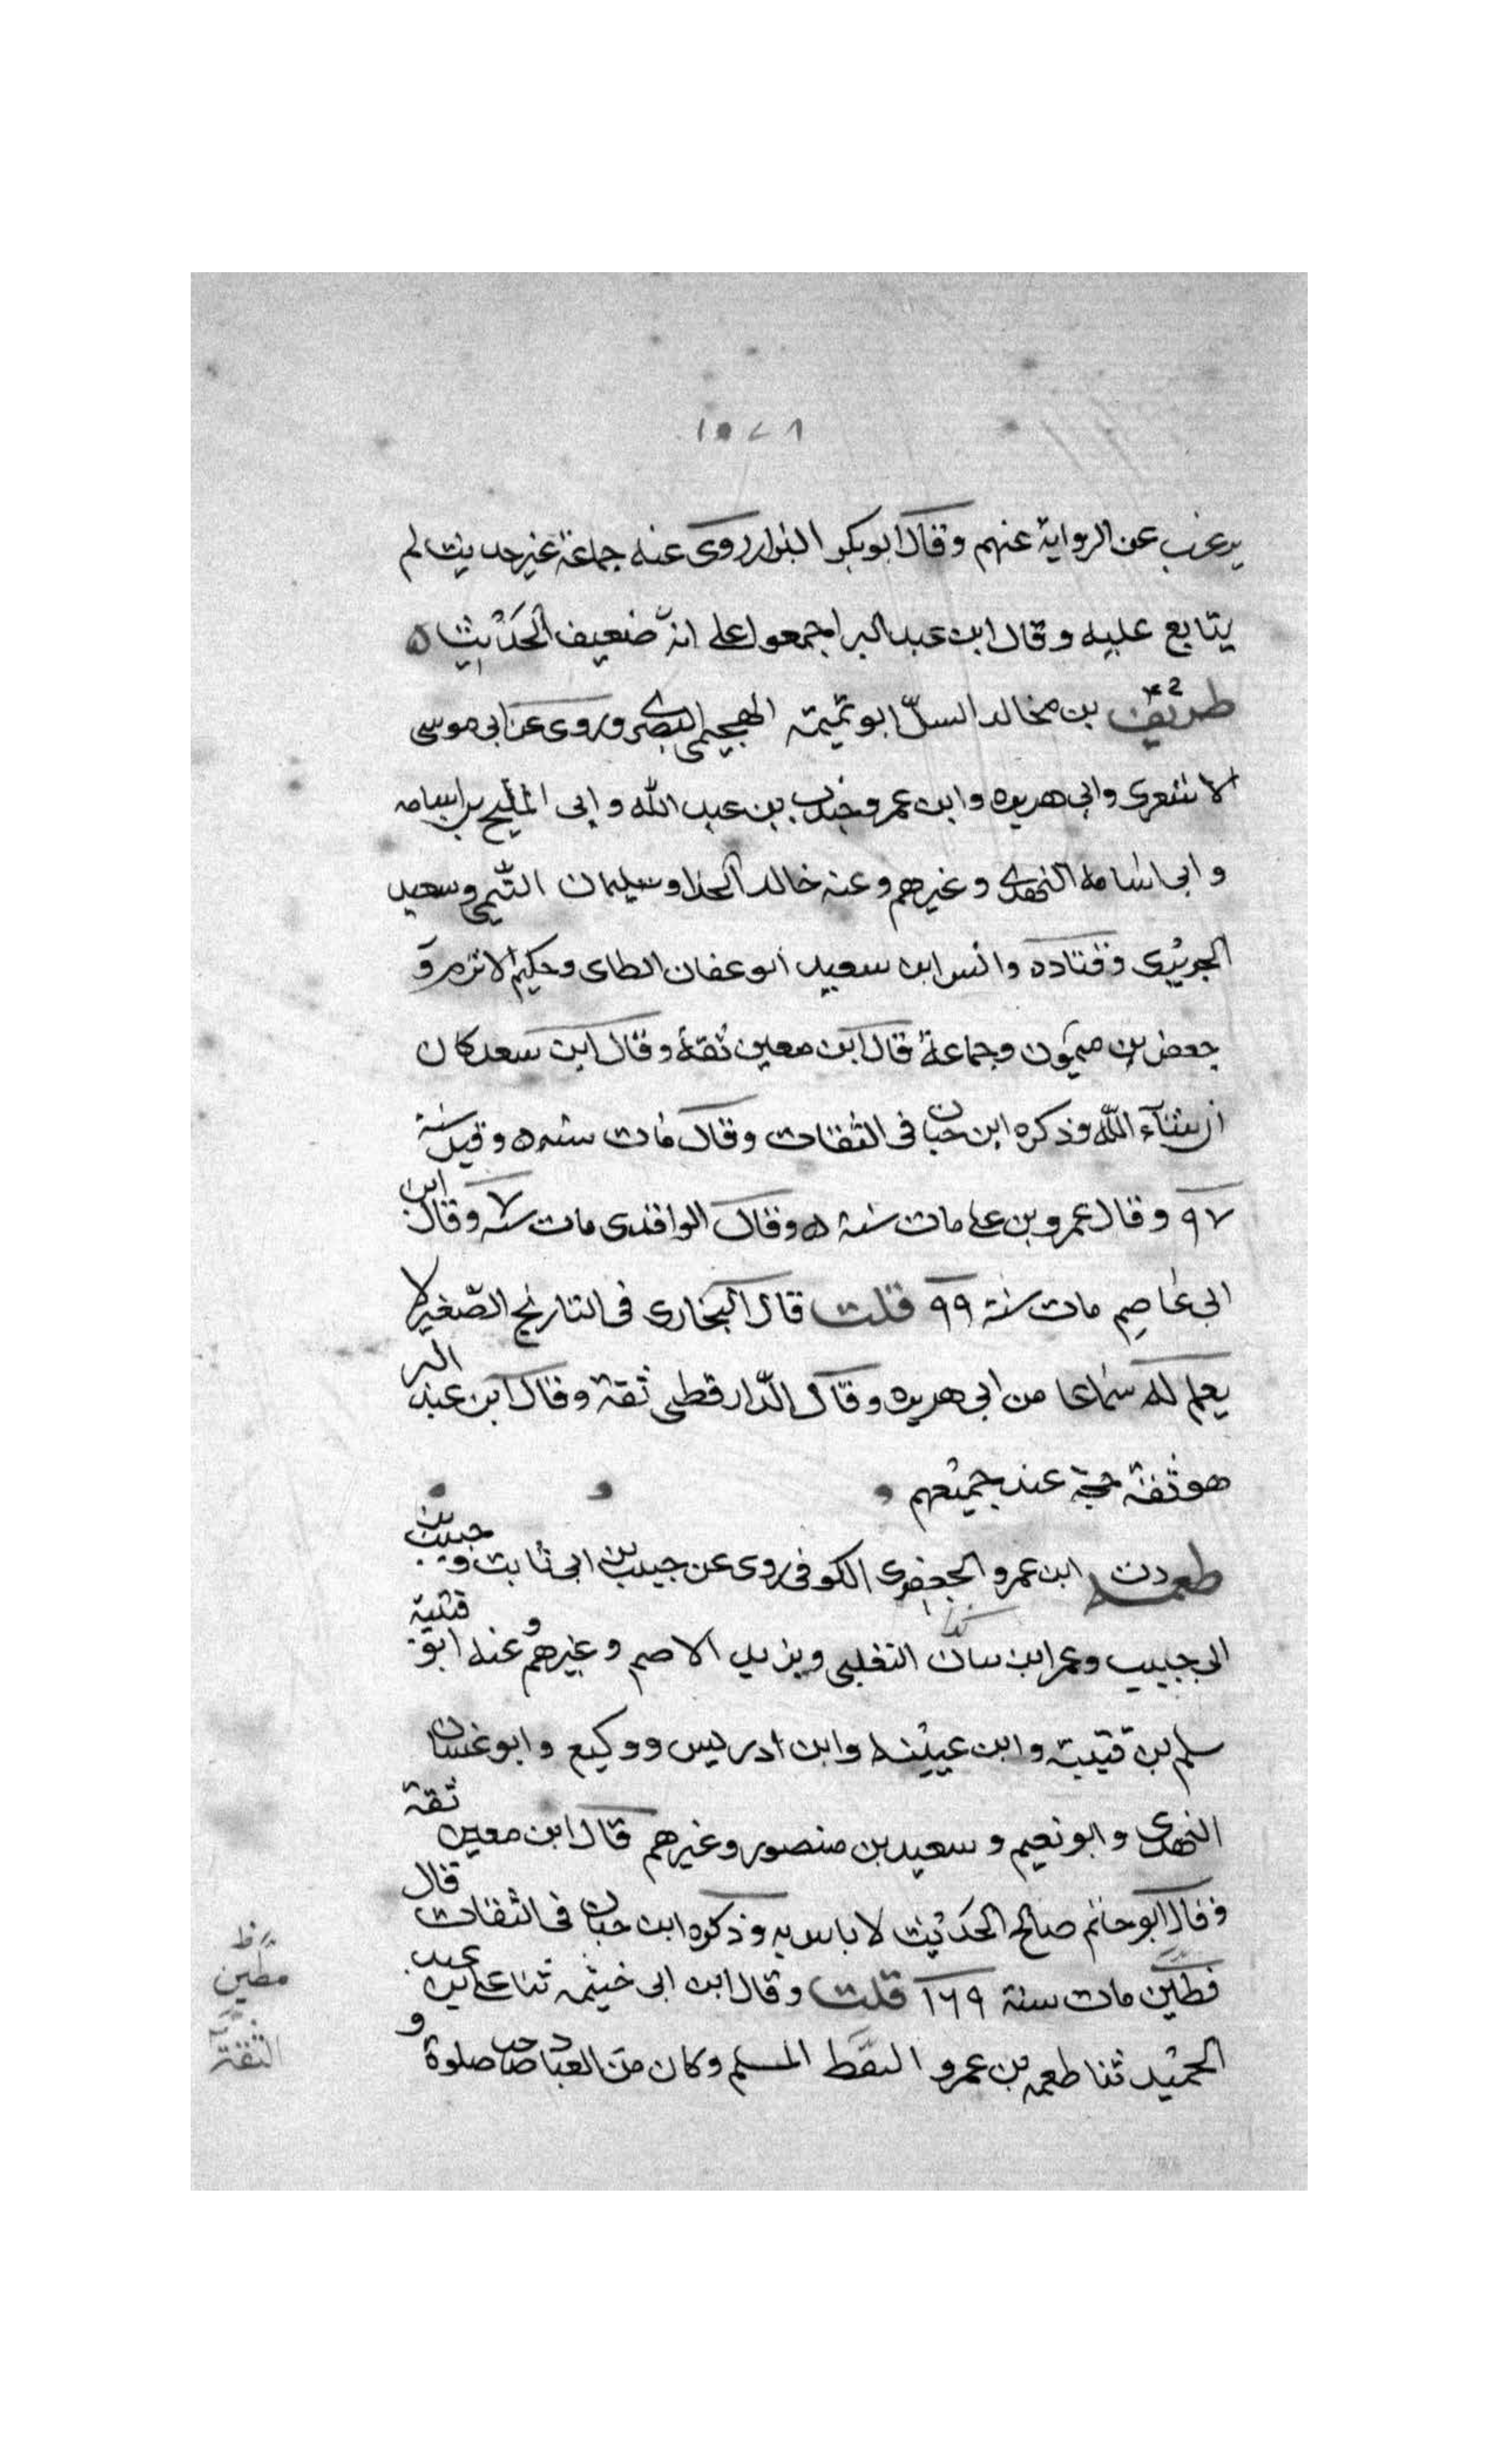 ١٠٧٨
يرغب عن الرواية عنهم وقال ابو بكر البزار روى عنه جماعة غير حديث لم
يتابع عليه وقال ابن عبد البر اجمعوا على انه ضعيف الحديث ه
طريف بن مخالد السلّ ابو تميمة الهجيمي البصرى وروى عن ابي موسى
الاشعرى وابي هريره وابن عمر وجندب بن عبد الله وابى المليح بن اسامه
وابى اسامة النهدى وغيرهم وعنه خالد الحذا وسليمان التيمي وسعيد
الجريرى وقتاده وانس ابن سعيد ابو عفان الطاى وحكيم الاثرم و
جعفر بن ميمون وجماعة قال ابن معين ثقة وقال ابن سعد كان
ان شاء الله وذكره ابن حبان فى الثقات وقال مات سنه ه وقيل سنة
٩٧ وقال عمرو بن على مات سنة ه وقال الواقدى مات سنه وقال ابن
ابى عاصم مات سنة ٩٩ قلت قال البخارى فى التاريخ الصغير لا
يعلم له سماعا من ابى هريره وقال الدّارقطنى ثقة وقال ابن عبد البر
هو ثقة حجة عند جميعهم
طعمه دت ابن عمرو الجعفرى الكوفى روى عن حبيب بن ابى ثابت وحبيب بن
ابى حبيب وعمر ابن بيان التغلبى ويزيد الاصم وغيرهم وعنه ابو قتيبة
سلم بن قتيبة وابن عيينه وابن ادريس ووكيع وابو غسان
النهدى وابو نعيم وسعيد بن منصور وغيرهم قال ابن معين ثقة
وقال ابو حاتم صالح الحديث لا باس به وذكره ابن حبان فى الثقات قال
فطين مات سنة ١٦٩ قلت وقال ابن ابى خيثمه ثنا على بن عبد
الحميد ثنا طعمه بن عمرو النقط المسلم وكان من العباد صاحب صلوة و
مطين
الثقة